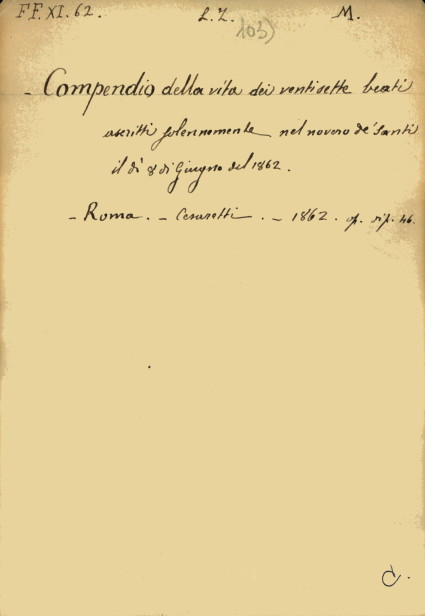 FF. XI. 62. L. Z. 103) M.
- Compendio della vita dei ventisette beati
ascritti solennemente nel novero de' Santi
il dì 8 di Giugno del 1862.
- Roma. - Cesaretti. - 1862. op. di p. 46.
C.